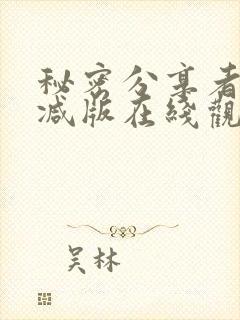 秘密分享者
减版在綫觀
吴林